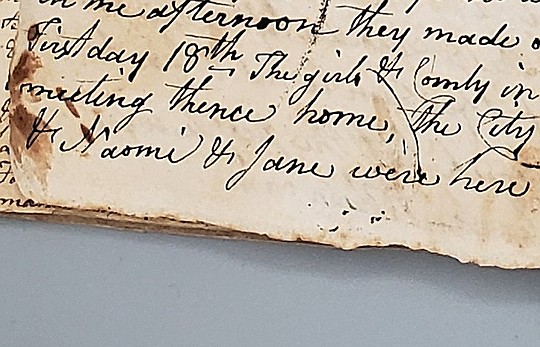 in the afternoon they made
First day 18th The girls & Comly in
meeting thence home, The City
& Naomi & Jane were here